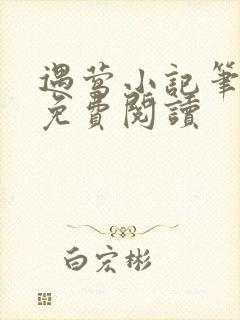 遇萤小記筆
免費閱讀
白宏彬